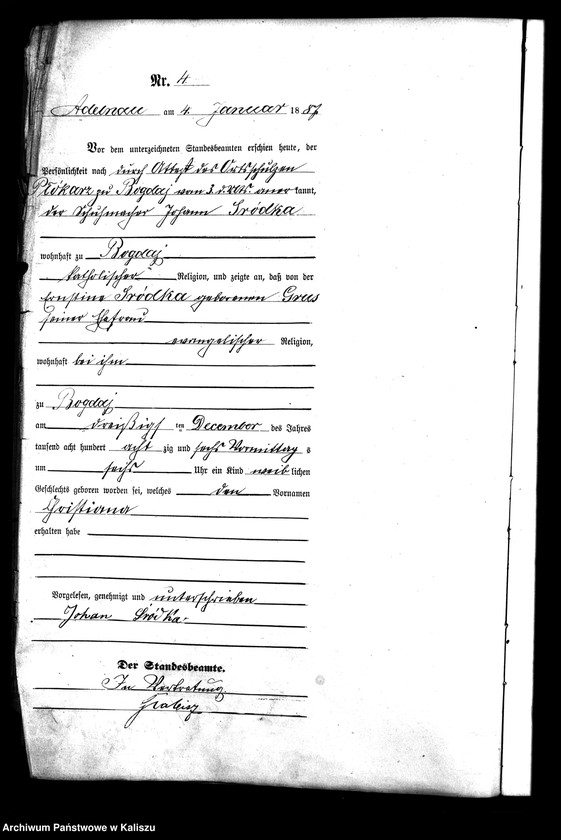 Nr. 4
Adelnau am 4. Januar 1887
Vor dem unterzeichneten Standesbeamten erschien heute, der
Persönlichkeit nach durch Attest des Ortsschulzen
zu Bogdaj vom 3. d. Mts kannt,
der Schuhmacher Johann Sródka
wohnhaft zu Bogdaj
katholischer Religion, und zeigte an, daß von der
Ernstine Sródka geborenen
seiner Ehefrau
evangelischer Religion,
wohnhaft bei ihm
zu Bogdaj
am dreißigsten December des Jahres
tausend acht hundert achtzig und sechs Vormittags
um sechs Uhr ein Kind weiblichen
Geschlechts geboren worden sei, welches den Vornamen
Christiana
erhalten habe
Vorgelesen, genehmigt und unterschrieben
Johan Sródka.
Der Standesbeamte.
In Vertretung
Archiwum Państwowe w Kaliszu